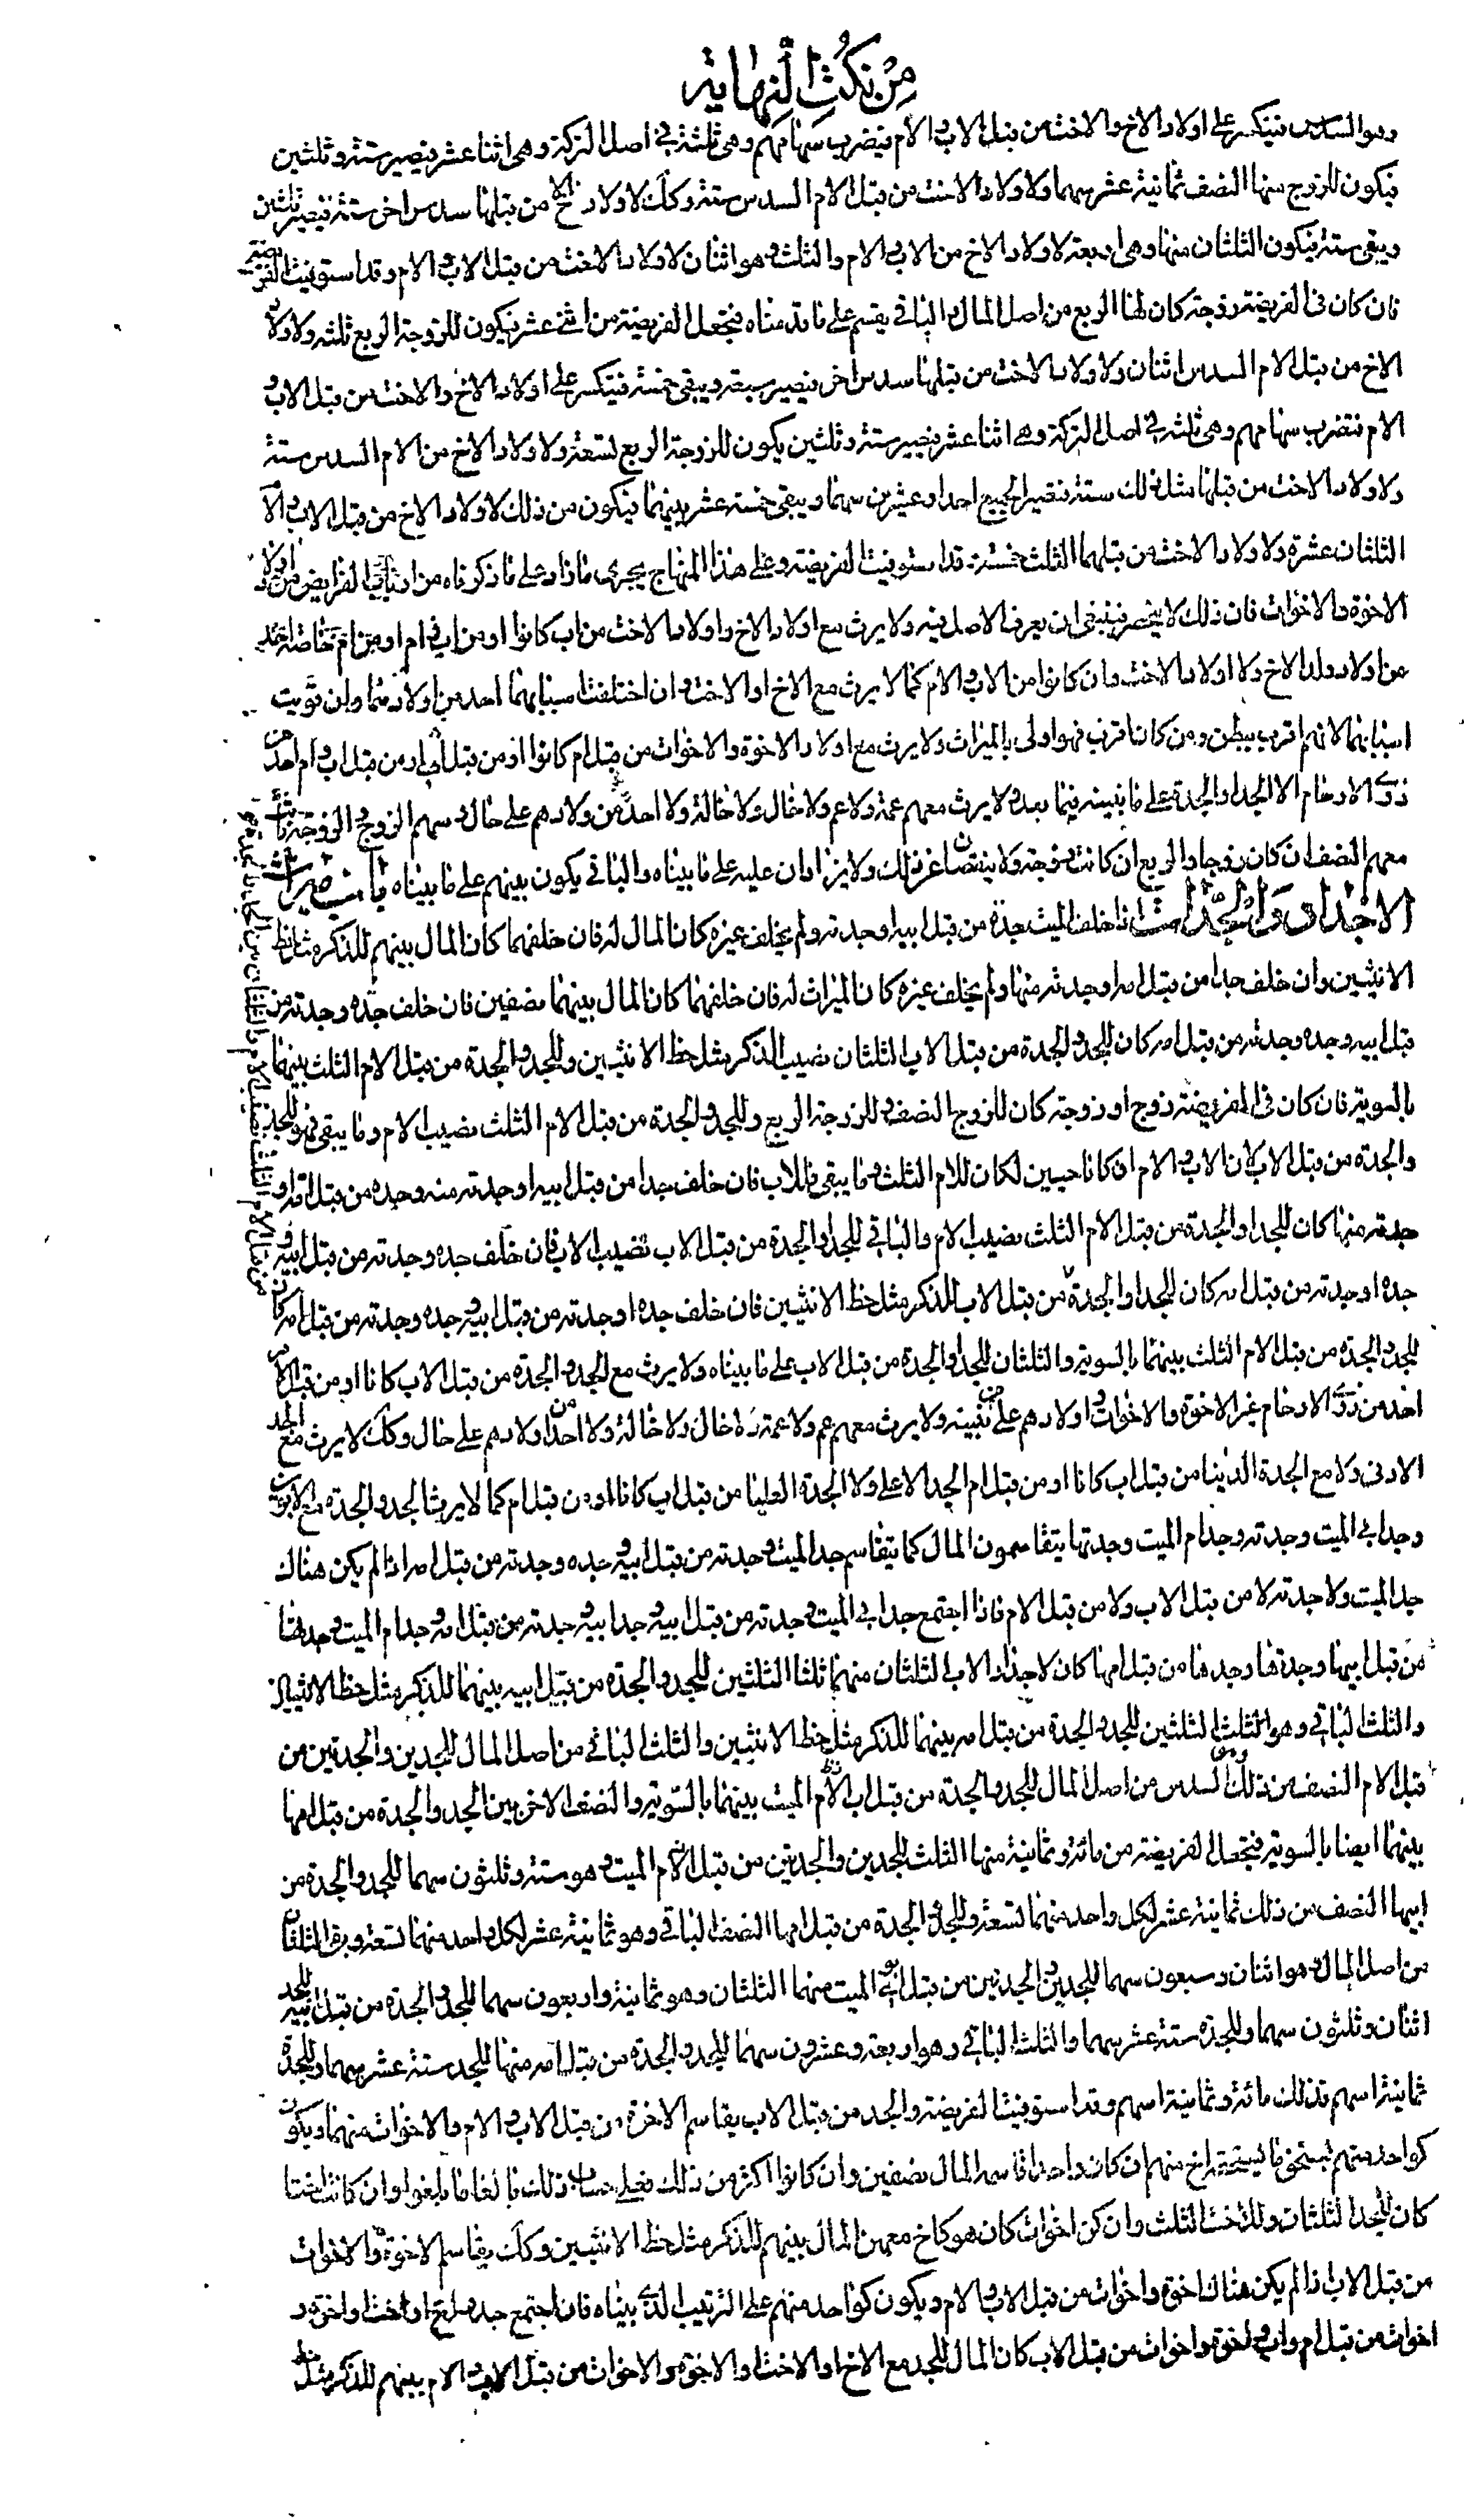 مِنْ نكتِ النهاية
وهو السدس فينكسر على اولاد الاخ والاخت من قبل الاب والام فيضرب سهامهم وهى ثلثة فى اصل التركة وهى اثنا عشر فيصير ستة وثلثين
فيكون للزوج منها النصف ثمانية عشر سهما ولاولاد الاخت من قبل الام السدس ستة وكك لاولاد الاخ من قبلها سدس اخر ستة فيصير ثلثين
ويبقى ستة فيكون الثلثان منها وهى اربعة لاولاد الاخ من الاب والام والثلث وهو اثنان لاولاد الاخت من قبل الاب والام وقد استوفيت الفريضة
فان كان فى الفريضة زوجة كان لها الربع من اصل المال والباقى يقسم على ما قدمناه فتجعل الفريضة من اثنى عشر فيكون للزوجة الربع ثلثة ولاولاد
الاخ من قبل الام السدس اثنان ولاولاد الاخت من قبلها سدس اخر فيصير سبعة ويبقى خمسة فيتكسر على اولاد الاخ والاخت من قبل الاب و
الام فتضرب سهامهم وهى ثلثة فى اصل التركة وهى اثنا عشر فيصير ستة وثلثين يكون للزوجة الربع تسعة ولاولاد الاخ من الام السدس ستة
ولاولاد الاخت من قبلها مثل ذلك ستة فتصير الجميع احدا وعشرين سهما ويبقى خمسة عشر بينهما فيكون من ذلك لاولاد الاخ من قبل الاب والام
الثلثان عشرة ولاولاد الاخت من قبلهما الثلث خمسة قد استوفيت الفريضة وعلى هذا المنهاج يجرى ما زاد على ما ذكرناه من الفرايض من اولاد
الاخوة والاخوات فان ذلك لا ينحصر فينبغى ان يعرف الاصل فيه ولا يرث مع اولاد الاخ واولاد الاخت من اب كانوا او من اب وام او من ام خاصة احد
من اولاد ولد الاخ ولا اولاد الاخت وان كانوا من الاب والام كما لا يرث مع الاخ او الاخت وان اختلفت اسبابهما احد من اولادهما وان قويت
اسبابهما لانهم اقرب ببطن ومن كان اقرب فهو اولى بالميراث ولا يرث مع اولاد الاخوة والاخوات من قبل ام كانوا او من قبل اب او من قبل اب وام احد من
ذوى الارحام الا الجد او الجدة على ما نبينه فيما بعد ولا يرث معهم عمة ولا عم ولا خال ولا خالة ولا احد من اولادهم على حال وسهم الزوج والزوجة ثابت
معهم النصف ان كان زوجا والربع ان كانت زوجة ولا ينقصان عن ذلك ولا يزادان عليه على ما بيناه والباقى يكون بينهم على ما بيناه باب ميراث
الاجداد والجدات اذا خلف الميت جده من قبل ابيه او جدته ولم يخلف غيره كان المال له فان خلفهما كان المال بينهم للذكر مثل حظ
الانثيين وان خلف جدا من قبل امه او جدته منها ولم يخلف غيره كان الميراث له فان خلفهما كان المال بينهما نصفين فان خلف جده وجدته من
قبل ابيه وجده وجدته من قبل امه كان للجد والجدة من قبل الاب الثلثان نصيب الذكر مثل حظ الانثيين وللجد والجدة من قبل الام الثلث بينهما
بالسوية فان كان فى الفريضة زوج او زوجة كان للزوج النصف وللزوجة الربع وللجد والجدة من قبل الام الثلث نصيب الام وما يبقى فهو للجد
والجدة من قبل الاب لان الاب والام ان كانا حيين لكان للام الثلث وما يبقى فللاب فان خلف جدا من قبل ابيه او جدته منه وجده من قبل امه او
جدته منها كان للجد او الجدة من قبل الام الثلث نصيب الام والباقى للجد او الجدة من قبل الاب نصيب الاب فان خلف جده وجدته من قبل ابيه و
جده او جدته من قبل امه كان للجد او الجدة من قبل الاب للذكر مثل حظ الانثيين فان خلف جده او جدته من قبل ابيه وجده وجدته من قبل امه كان
للجد والجدة من قبل الام الثلث بينهما بالسوية والثلثان للجد او الجدة من قبل الاب على ما بيناه ولا يرث مع الجد والجدة من قبل الاب كانا او من قبل الام
احد من ذوى الارحام غير الاخوة والاخوات او اولادهم على ما نبينه ولا يرث معهم عم ولا عمة ولا خال ولا خالة ولا احد من اولادهم على حال وكك لا يرث مع الجد
الادنى ولا مع الجدة الدنيا من قبل اب كانا او من قبل ام الجد الاعلى ولا الجدة العليا من قبل اب كانا او من قبل ام كما لا يرث الجد والجدة مع الابوين
وجد ابى الميت وجدته وجد ام الميت وجدتها يتقاسمون المال كما يتقاسم جد الميت وجدته من قبل ابيه وجده وجدته من قبل امه اذا لم يكن هناك
جد الميت ولا جدته لا من قبل الاب ولا من قبل الام فاذا اجتمع جد ابى الميت وجدته من قبل ابيه وجد ابيه وجدته من قبل امه وجد ام الميت وجدتها
من قبل ابيها وجدها وجدتها من قبل امها كان لاجداد الاب الثلثان منهما ثلثا الثلثين للجد والجدة من قبل ابيه بينهما للذكر مثل حظ الانثيين
والثلث الباقى وهو الثلث الثلثين للجد والجدة من قبل امه بينهما للذكر مثل حظ الانثيين والثلث الباقى من اصل المال للجدين والجدتين من
قبل الام النصف من ذلك وهو السدس من اصل المال للجد والجدة من قبل اب الام الميت بينهما بالسوية والنصف الاخر بين الجد والجدة من قبل امها
بينهما ايضا بالسوية فتجعل الفريضة من مائة وثمانية منها الثلث للجدين والجدتين من قبل الام الميت وهو ستة وثلثون سهما للجد والجدة من
ابيها النصف من ذلك ثمانية عشر لكل واحد منهما تسعة وللجد والجدة من قبل امها النصف الباقى وهو ثمانية عشر لكل واحد منهما تسعة وبقى الثلثان
من اصل المال وهو اثنان وسبعون سهما للجدين والجدتين من قبل ابى الميت منهما الثلثان وهو ثمانية واربعون سهما للجد والجدة من قبل ابيه للجد
اثنان وثلثون سهما وللجدة ستة عشر سهما والثلث الباقى وهو اربعة وعشرون سهما للجد والجدة من قبل امه منها للجد ستة عشر سهما وللجدة
ثمانية اسهم فذلك مائة وثمانية اسهم وقد استوفيت الفريضة والجد من قبل الاب يقاسم الاخوة من قبل الاب والام والاخوات منهما ويكون
كواحد منهم يستحق ما يستحقه اخ منهم ان كان واحدا قاسمه المال نصفين وان كانوا اكثر من ذلك فعلى حساب ذلك بالغا ما بلغوا وان كانت اختا
كان للجد الثلثان وللاخت الثلث وان كن اخوات كان هو كاخ معهن المال بينهم للذكر مثل حظ الانثيين وكك يقاسم الاخوة والاخوات
من قبل الاب اذا لم يكن هناك اخوة واخوات من قبل الاب والام ويكون كواحد منهم على الترتيب الذى بيناه فان اجتمع جد مع اخ او اخت واخوة و
اخوات من قبل ام واب واخوة واخوات من قبل الاب كان المال للجد مع الاخ او الاخت والاخوة والاخوات من قبل الاب والام بينهم للذكر مثل حظ